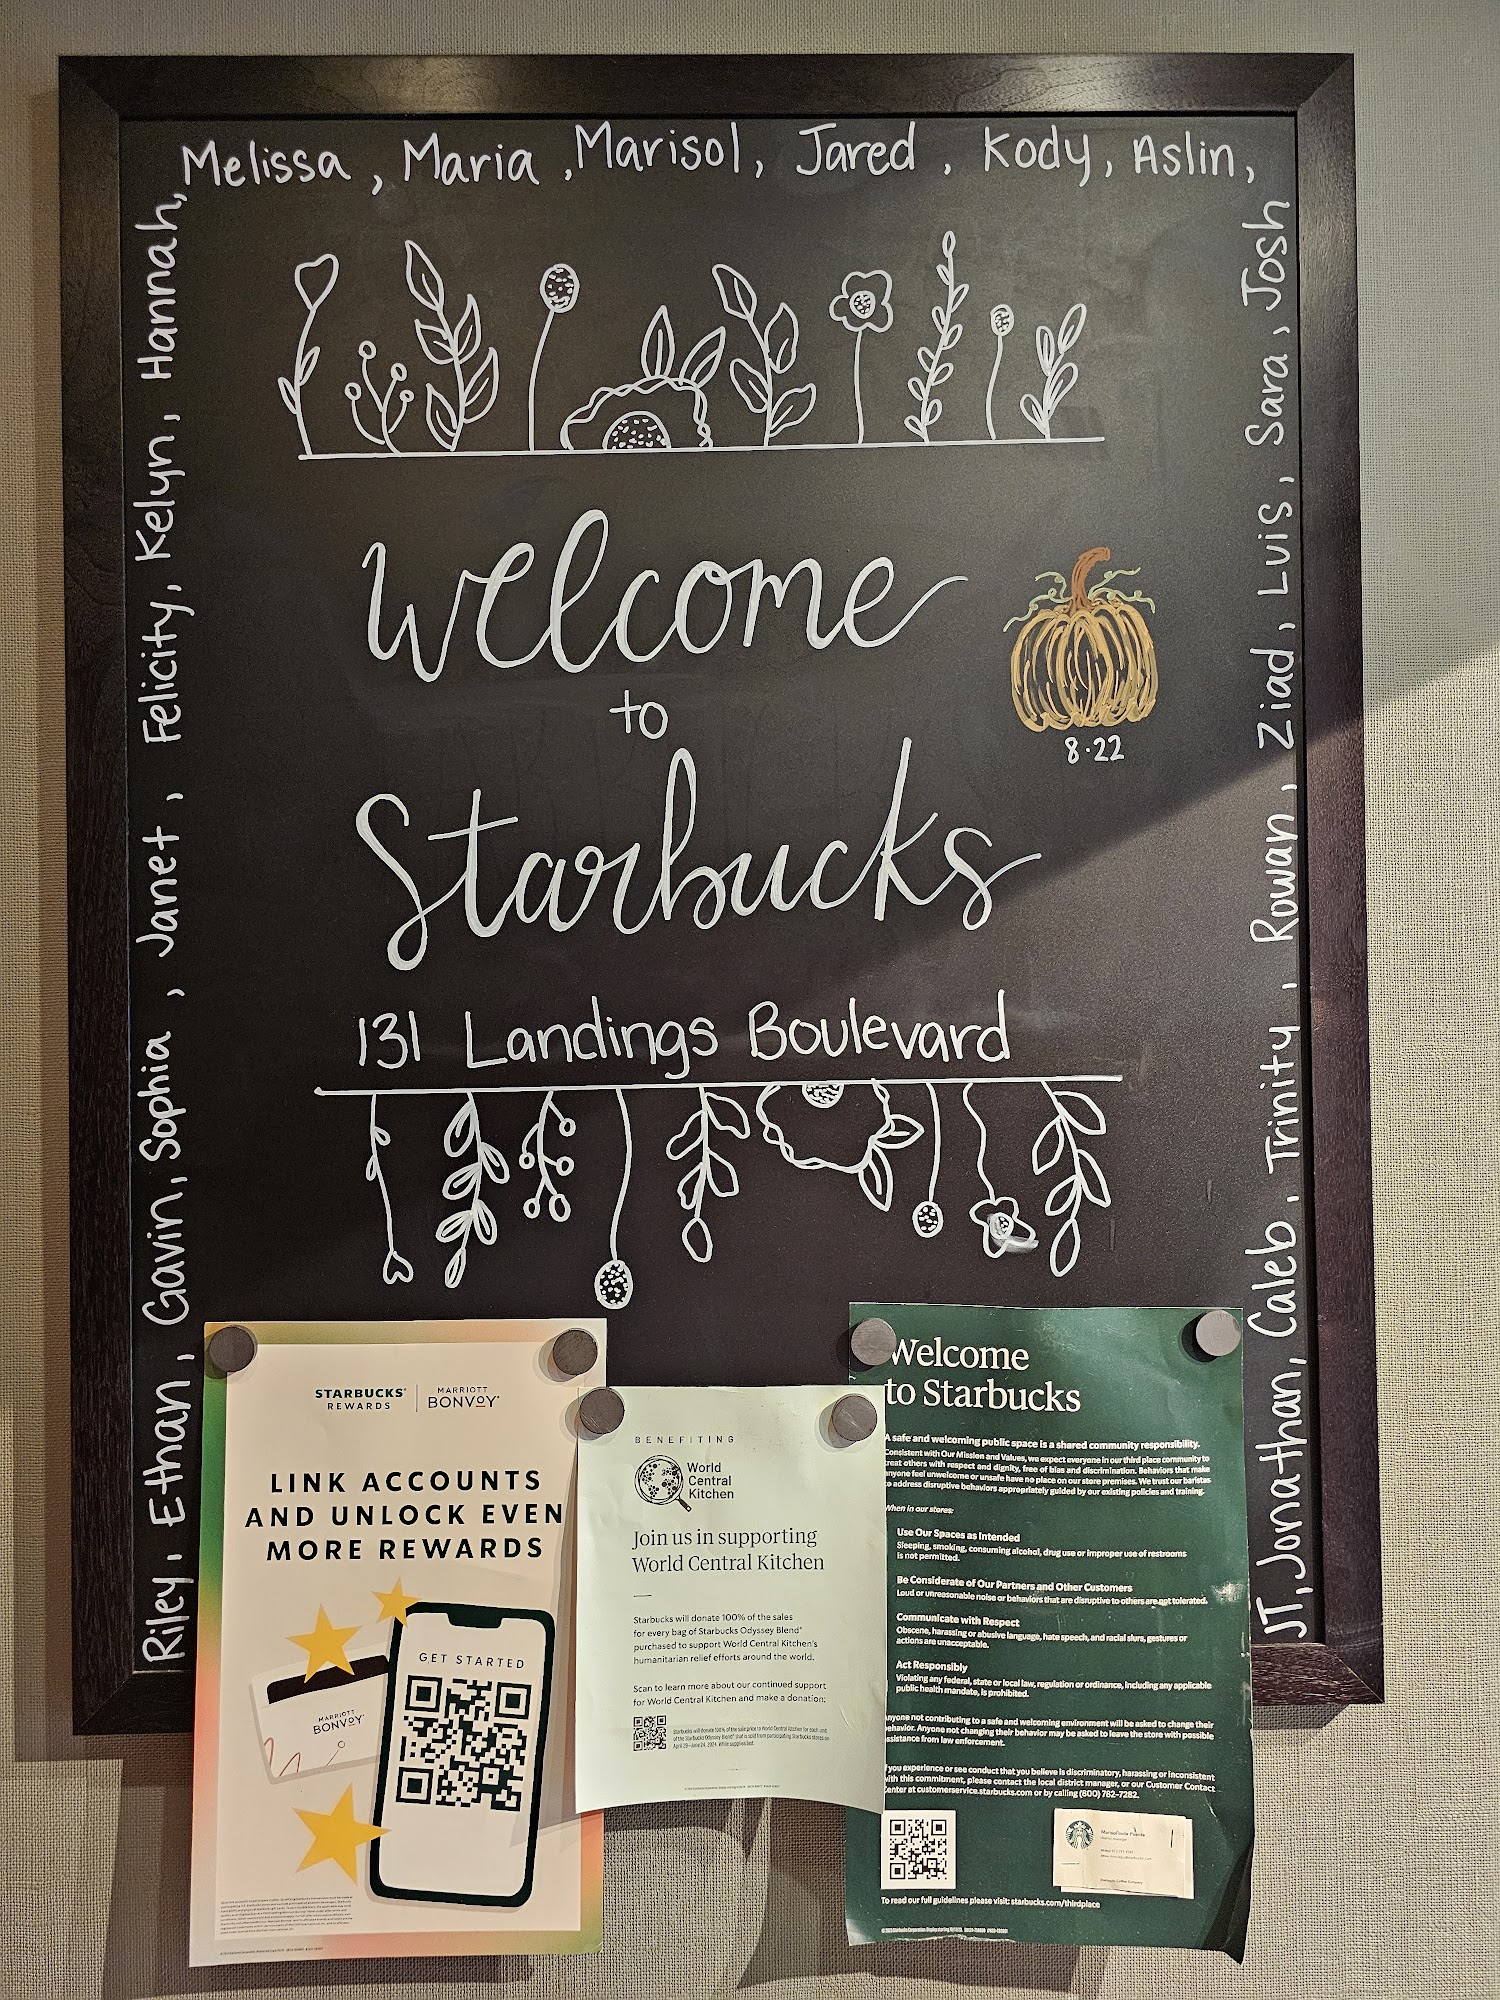 Melissa, Maria, Marisol, Jared, Kody, Aslin,
Riley, Ethan, Gavin, Sophia, Janet, Felicity, Kelyn, Hannah,
JT, Jonathan, Caleb, Trinity, Rowan, Ziad, Luis, Sara, Josh
Welcome
to
Starbucks
8·22
131 Landings Boulevard
STARBUCKS® REWARDS
MARRIOTT BONVOY®
LINK ACCOUNTS
AND UNLOCK EVEN
MORE REWARDS
GET STARTED
MARRIOTT
BONVOY
BENEFITING
World
Central
Kitchen
Join us in supporting
World Central Kitchen
Starbucks will donate 100% of the sales
for every bag of Starbucks Odyssey Blend®
purchased to support World Central Kitchen's
humanitarian relief efforts around the world.
Scan to learn more about our continued support
for World Central Kitchen and make a donation:
Starbucks will donate 100% of the sale price to World Central Kitchen for each unit
of the Starbucks Odyssey Blend® that is sold from participating Starbucks stores on
April 29–June 24, 2024. While supplies last.
Welcome
to Starbucks
A safe and welcoming public space is a shared community responsibility.
Consistent with Our Mission and Values, we expect everyone in our third place community to
treat others with respect and dignity, free of bias and discrimination. Behaviors that make
anyone feel unwelcome or unsafe have no place on our store premises. We trust our baristas
to address disruptive behaviors appropriately guided by our existing policies and training.
When in our stores:
Use Our Spaces as Intended
Sleeping, smoking, consuming alcohol, drug use or improper use of restrooms
is not permitted.
Be Considerate of Our Partners and Other Customers
Loud or unreasonable noise or behaviors that are disruptive to others are not tolerated.
Communicate with Respect
Obscene, harassing or abusive language, hate speech, and racial slurs, gestures or
actions are unacceptable.
Act Responsibly
Violating any federal, state or local law, regulation or ordinance, including any applicable
public health mandate, is prohibited.
Anyone not contributing to a safe and welcoming environment will be asked to change their
behavior. Anyone not changing their behavior may be asked to leave the store with possible
assistance from law enforcement.
If you experience or see conduct that you believe is discriminatory, harassing or inconsistent
with this commitment, please contact the local district manager, or our Customer Contact
Center at customerservice.starbucks.com or by calling (800) 782-7282.
Starbucks Coffee Company
To read our full guidelines please visit: starbucks.com/thirdplace